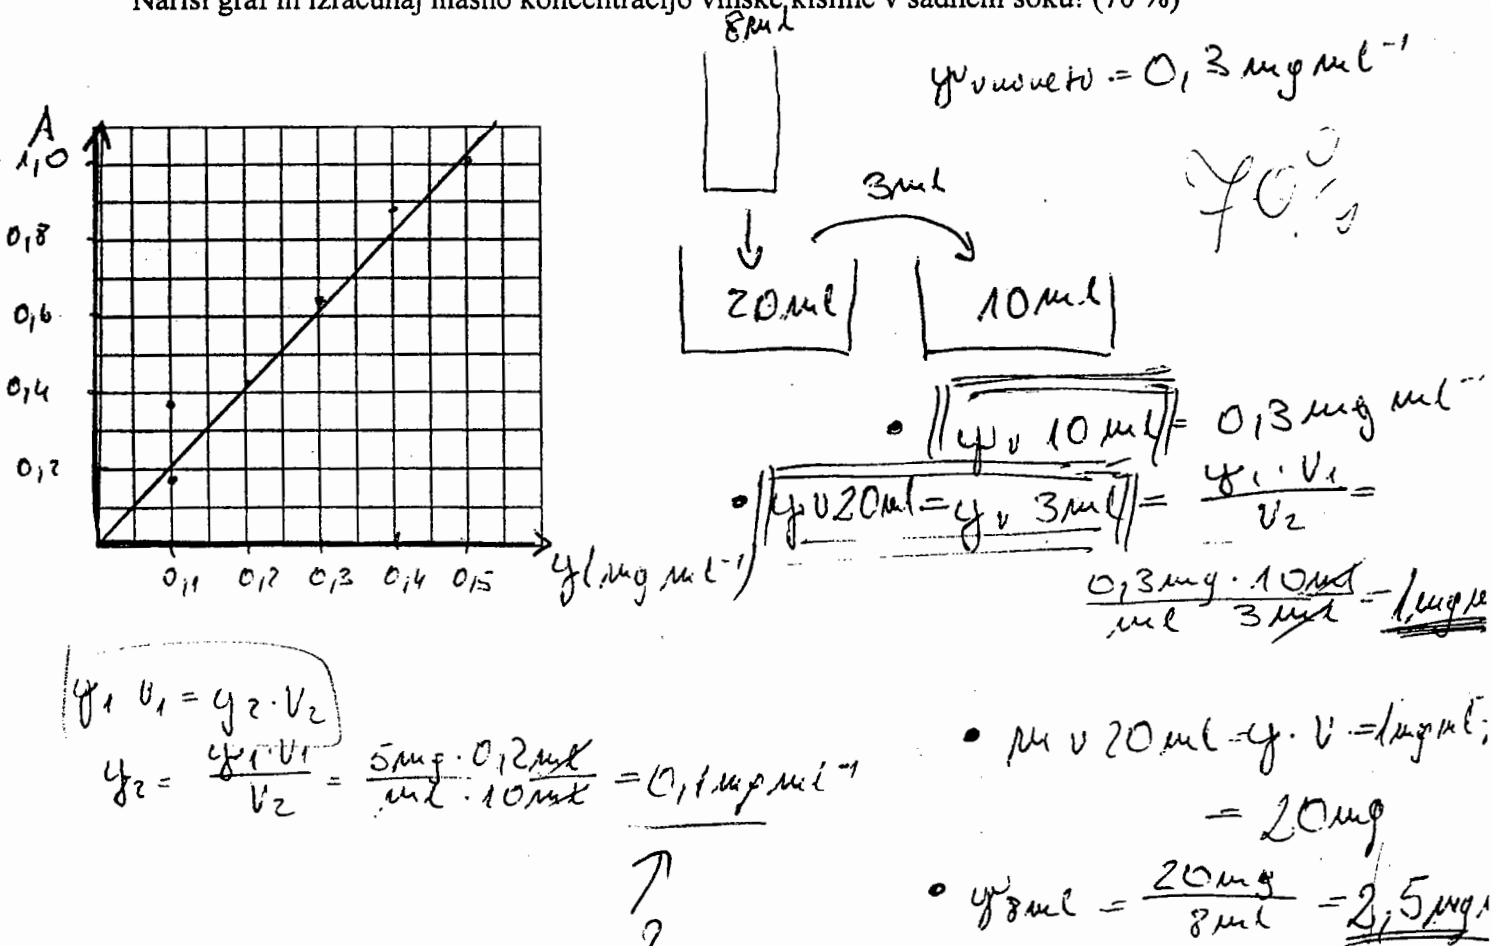 Nariši graf in izračunaj masno koncentracijo vinske kisline v sadnem soku! (70 %)
8ml
γ v = 0,3 mg ml⁻¹
70%
3ml
20ml
10ml
A
1,0
0,8
0,6
0,4
0,2
0,1 0,2 0,3 0,4 0,5 γ(mg ml⁻¹)
• γ v 10 ml = 0,3 mg ml⁻¹
• γ v 20ml = γ v 3ml = γ₁ · V₁ / V₂ =
0,3mg · 10ml / ml 3ml = 1mg
γ₁ V₁ = γ₂ · V₂
γ₂ = γ₁ · V₁ / V₂ = 5mg · 0,2ml / ml · 10ml = 0,1mg ml⁻¹
?
• m v 20ml = γ · V = 1mg ml⁻¹
= 20mg
• γ 8ml = 20mg / 8ml = 2,5mg